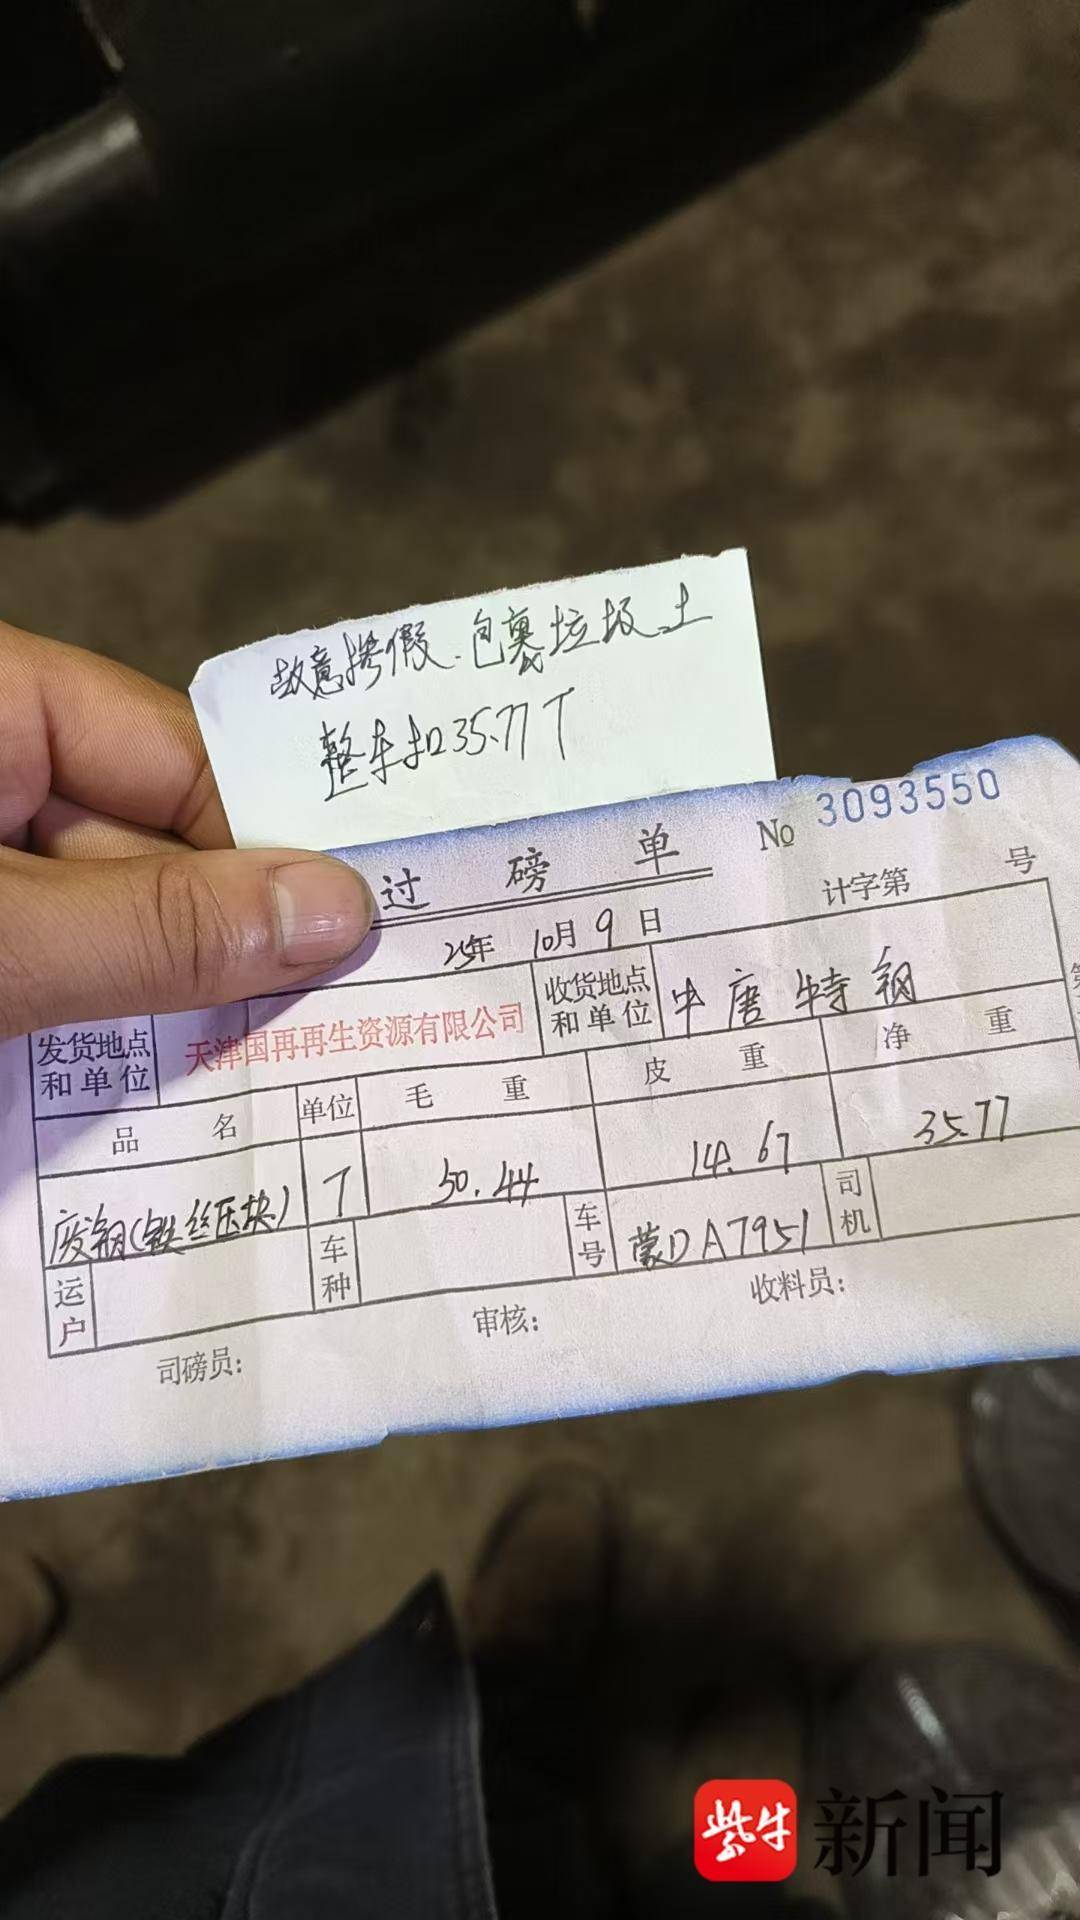 故意搀假.包裹垃圾土
整车扣35.77T
过磅单
№ 3093550
25年 10月 9日
计字第 号
发货地点和单位
天津国再再生资源有限公司
收货地点和单位
中唐特钢
品名 单位 毛重 皮重 净重
废钢(铁丝压块) T 50.44 14.67 35.77
运户 车种 车号 蒙DA7951 司机
司磅员: 审核: 收料员:
紫牛 新闻